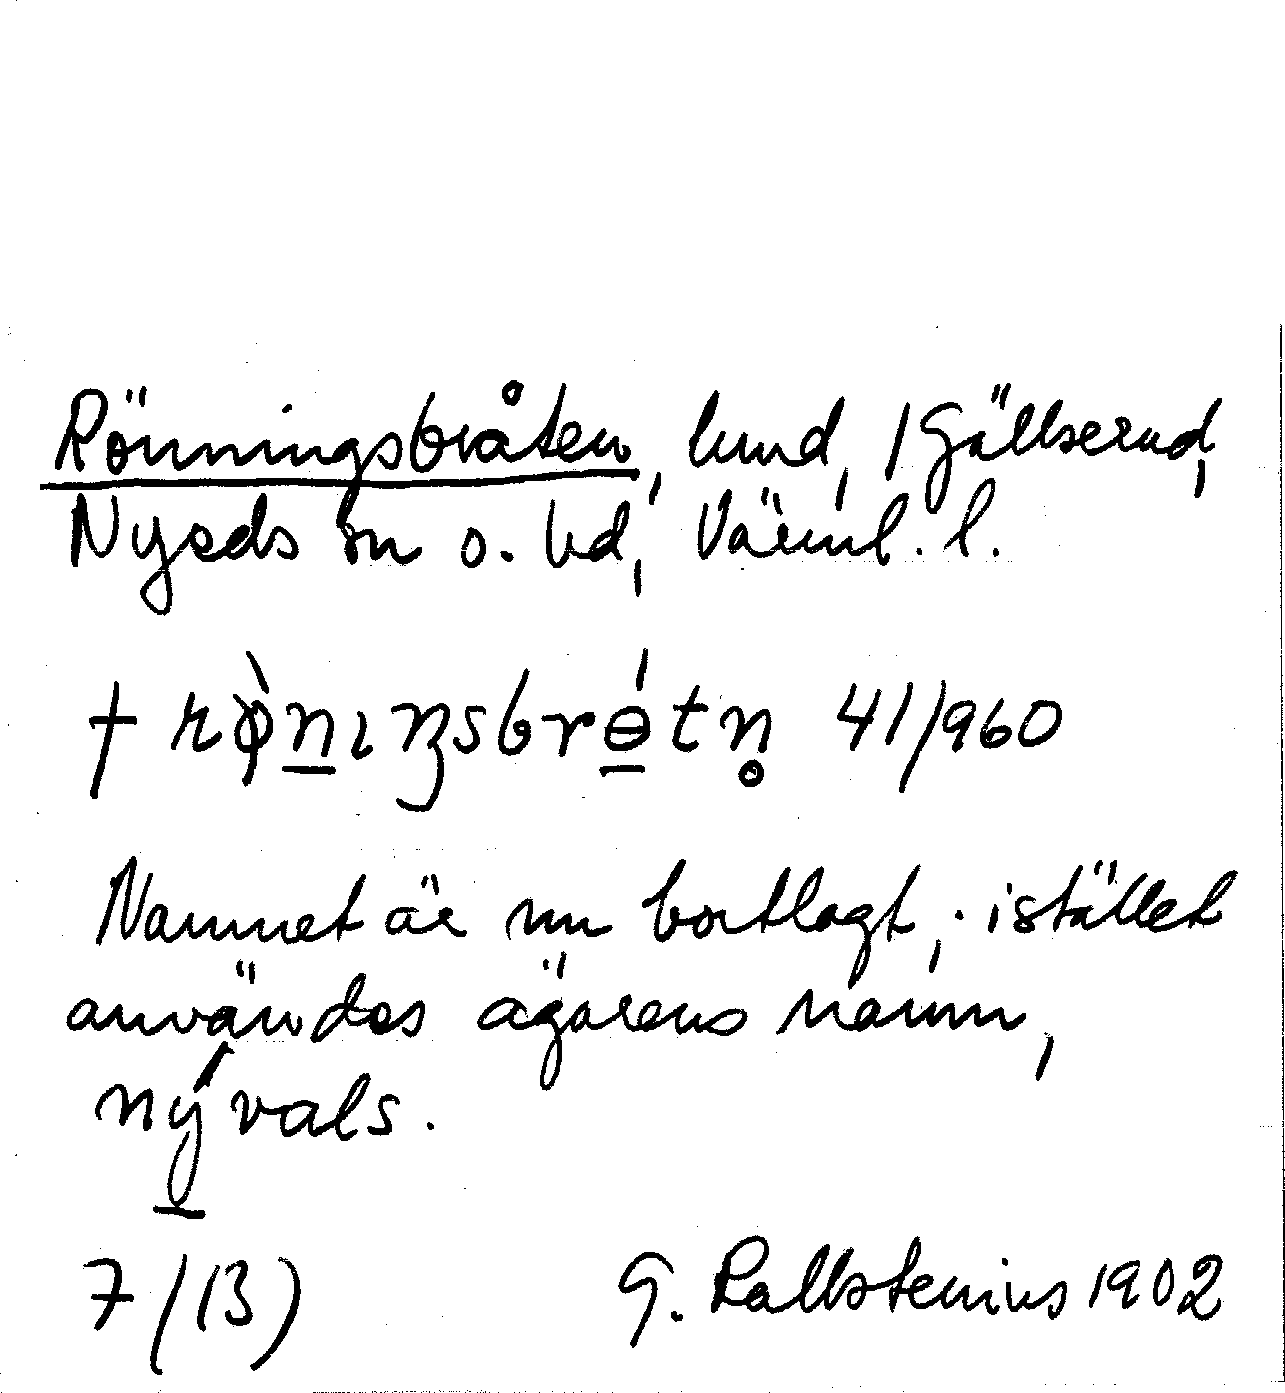 Rönningsbråten, lund, / Gällserud,
Nyeds sn o. hd, Värml. l.
† rø̀n̲ıŋsbrɵ̲́tn̥ 41/960
Namnet är nu bortlagt, istället
användes ägarens namn,
ný̲vals.
7 (13) G. Kallstenius 1902